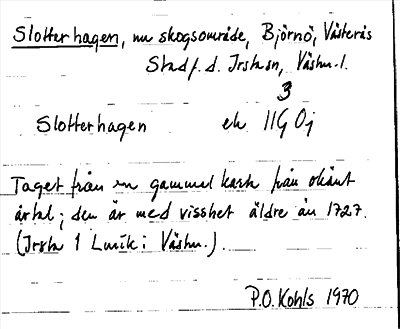 Slotterhagen, nu skogsområde, Björnö, Västerås
Stadsf. d. Irsta sn, Västm. l.
3
Slotterhagen ek 11G Oj
Taget från en gammal karta från okänt
årtal; den är med visshet äldre än 1727.
(Irsta 1 Lmík i Västm.).
P.O. Kohls 1970